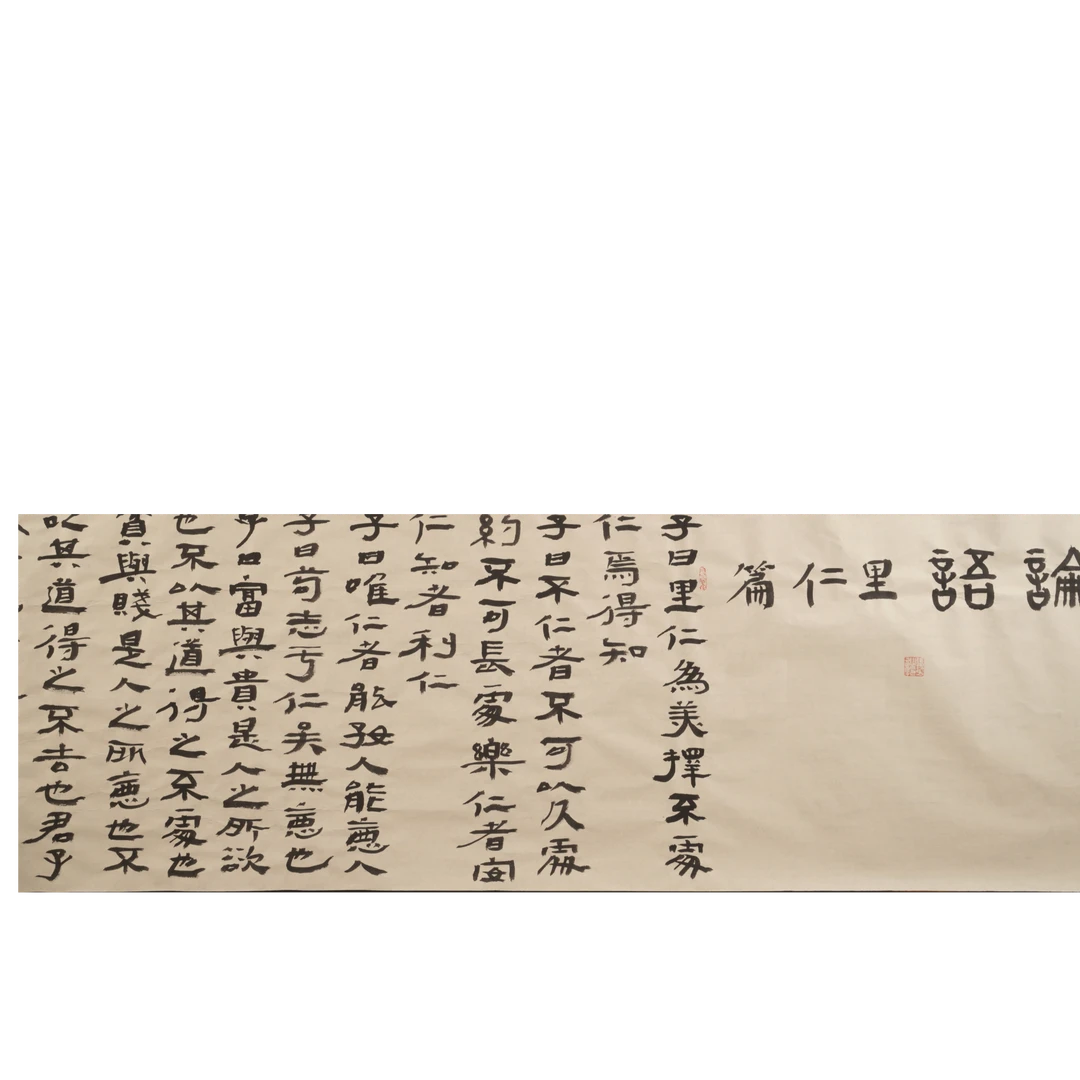 論語 里仁篇
子曰里仁為美擇不處
仁焉得知
子曰不仁者不可以久處
約不可長處樂仁者安
仁知者利仁
子曰唯仁者能好人能惡人
子曰苟志于仁矣無惡也
子曰富與貴是人之所欲
也不以其道得之不處也
貧與賤是人之所惡也不
以其道得之不去也君子